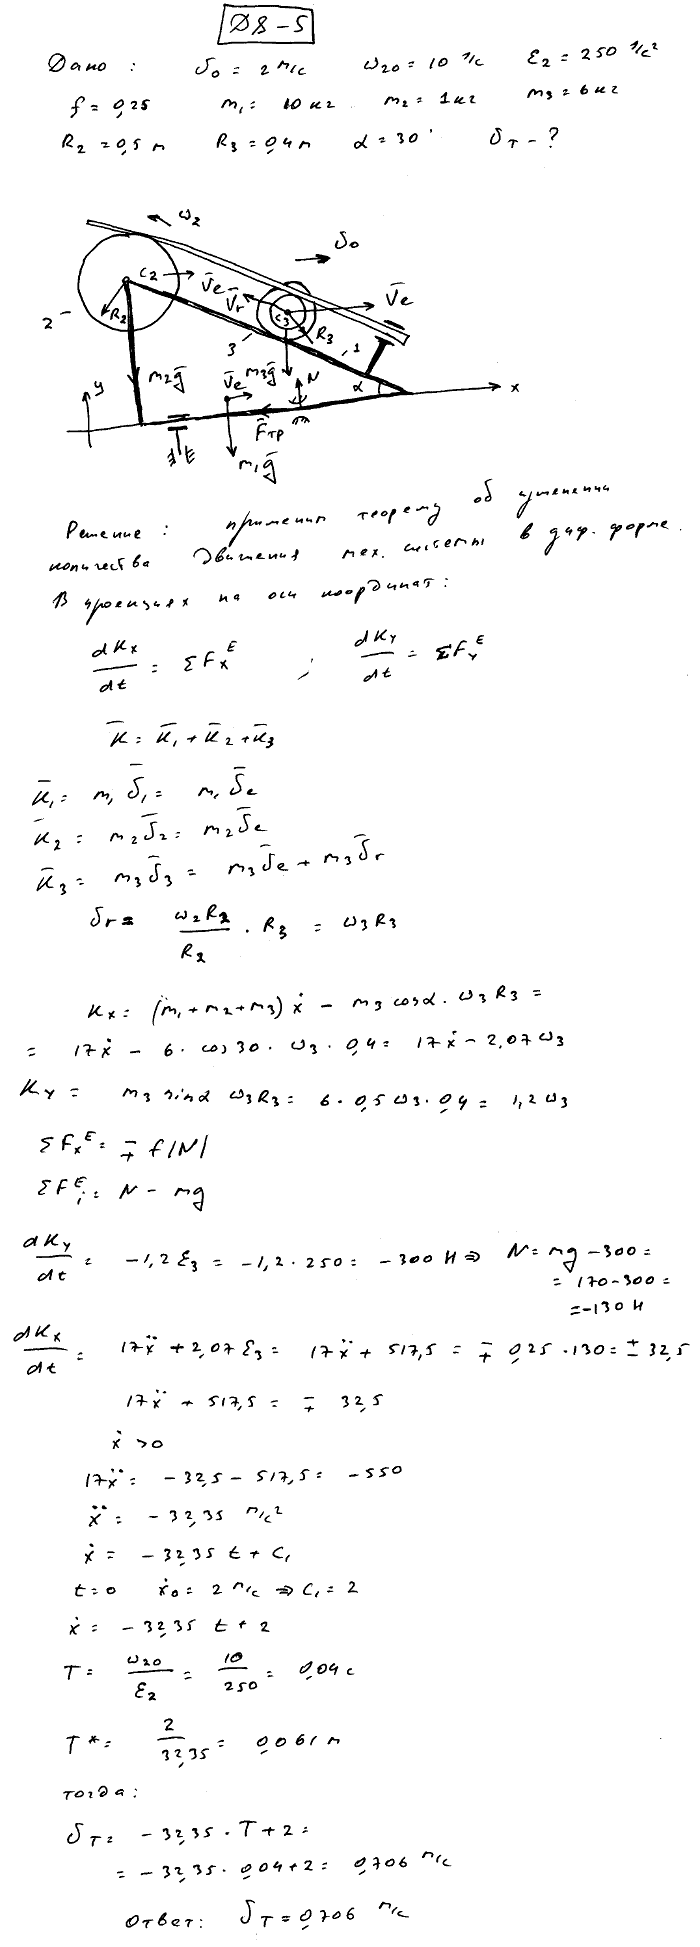 Д8-5
Дано: υ₀ = 2 м/с ω₂₀ = 10 1/с ε₂ = 250 1/с²
f = 0,25 m₁ = 10 кг m₂ = 1 кг m₃ = 6 кг
R₂ = 0,5 м R₃ = 0,4 м α = 30° υ_T - ?
ω₂
υ₀
C₂ V̄e V̄r V̄e
R₂ C₃
2 3 R₃ 1
m₂ḡ V̄e m₃ḡ N α
y x
F̄тр
m₁ḡ
Решение: применим теорему об изменении
количества движения мех. системы в диф. форме.
В проекциях на оси координат:
dKx/dt = ΣFx^E ; dKy/dt = ΣFy^E
K̄ = K̄₁ + K̄₂ + K̄₃
K̄₁ = m₁ῡ₁ = m₁ῡe
K̄₂ = m₂ῡ₂ = m₂ῡe
K̄₃ = m₃ῡ₃ = m₃ῡe + m₃ῡr
υr = ω₂R₂/R₂ · R₃ = ω₃R₃
Kx = (m₁+m₂+m₃)ẋ - m₃cosα · ω₃R₃ =
= 17ẋ - 6 · cos30 · ω₃ · 0,4 = 17ẋ - 2,07ω₃
Ky = m₃ sinα ω₃R₃ = 6 · 0,5ω₃ · 0,4 = 1,2ω₃
ΣFx^E = ∓ f|N|
ΣFi^E = N - mg
dKy/dt = -1,2ε₃ = -1,2 · 250 = -300 Н ⇒ N = mg - 300 =
= 170 - 300 =
= -130 Н
dKx/dt = 17ẍ + 2,07ε₃ = 17ẍ + 517,5 = ∓ 0,25 · 130 = ± 32,5
17ẍ + 517,5 = ∓ 32,5
ẋ > 0
17ẍ = -32,5 - 517,5 = -550
ẍ = -32,35 м/с²
ẋ = -32,35 t + C₁
t = 0 ẋ₀ = 2 м/с ⇒ C₁ = 2
ẋ = -32,35 t + 2
T = ω₂₀/ε₂ = 10/250 = 0,04 с
T* = 2/32,35 = 0,061 м
тогда:
υ_T = -32,35 · T + 2 =
= -32,35 · 0,04 + 2 = 0,706 м/с
Ответ: υ_T = 0,706 м/с